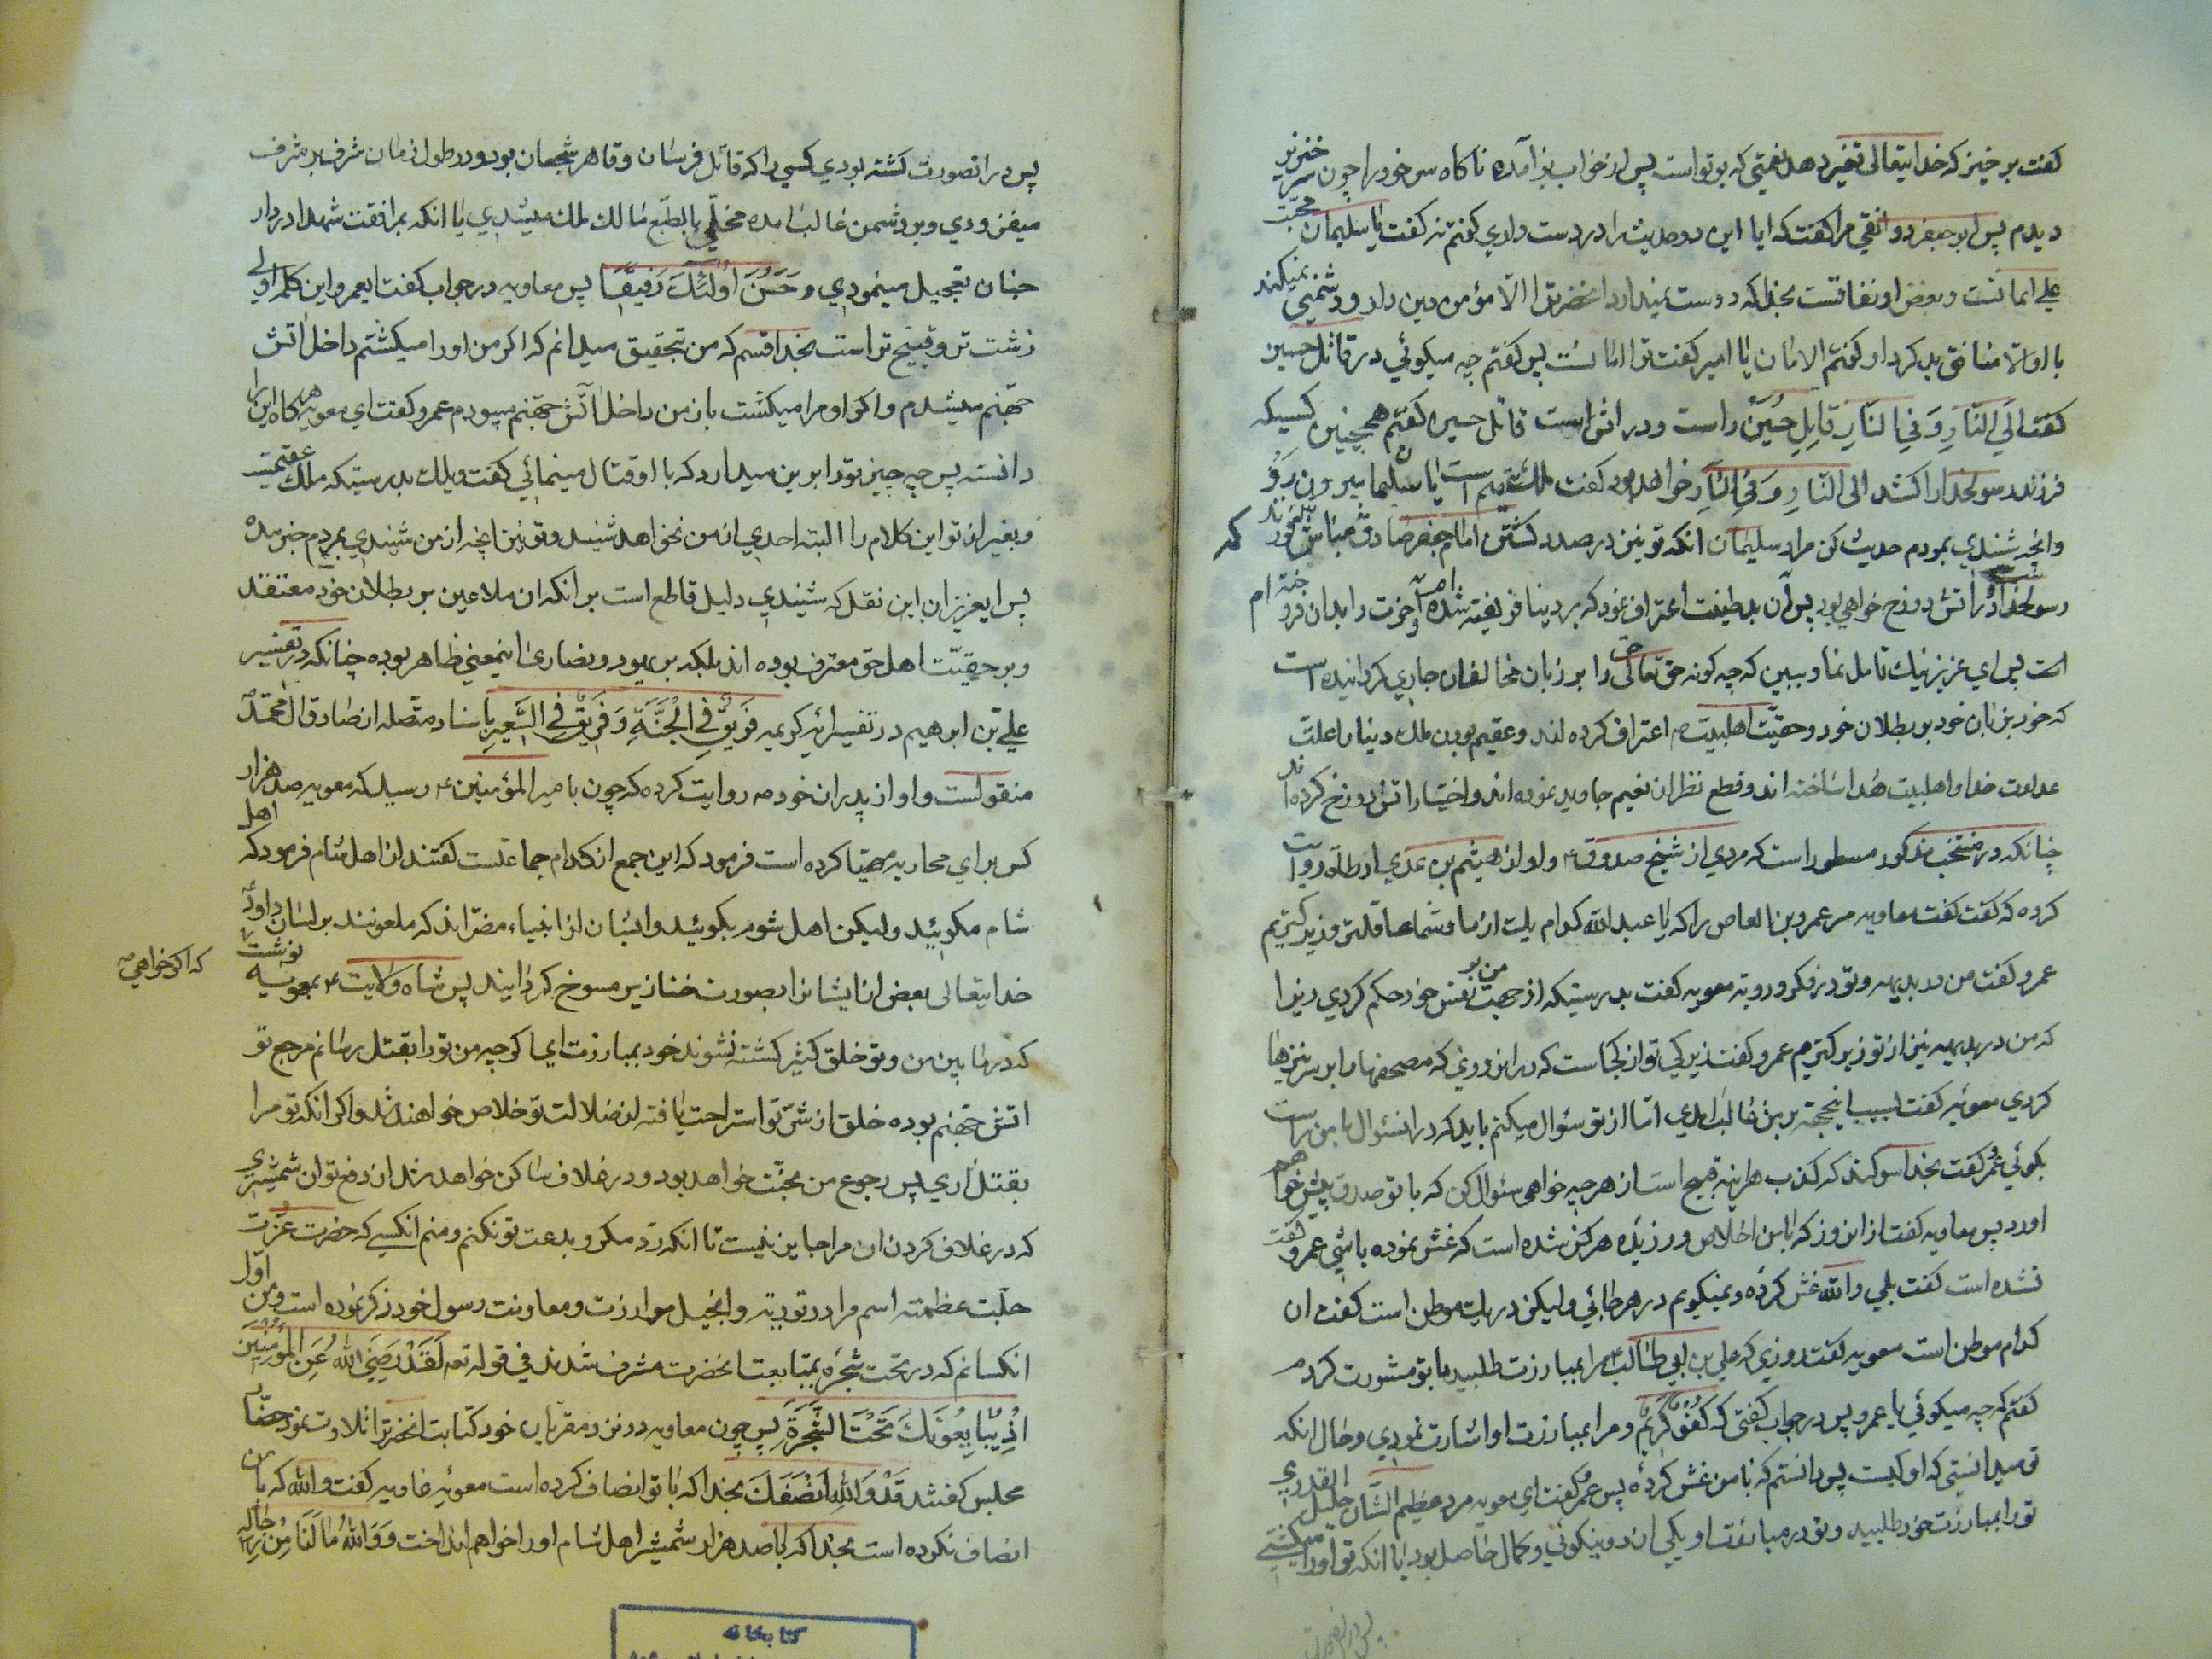 کفت برخیز که خدایتعالی تغیر دهد نعمتی که بر تو است پس از خواب برآمده ناکاه سر خود را چون سر خنزیر
دیدم پس ابو جعفر دوانقی مرا کفت که ایا این دو حدیث را در دست داری کفتم نه کفت یا سلیمان محبّت
علی ایمانست و بغض او نفاقست بخدا که دوست نمیدارد انحضرترا الا مؤمن دین دار و دشمنی نمیکند
با او الا منافق بد کردار کفتم الامان یا امیر کفت ترا امانست پس کفتم چه میکوئي در قاتل حسین
کفت اِلَی النّارِ وَ فِي النّارِ قاتِلِ حُسَیْنْ راست و در اتش است قاتل حسین کفتم همچنین کسیکه
فرزند رسولخدا را کشد الی النّارِ وَ فِي النّارِ خواهد بود کفت الملك عقیم است یا سلیمان بیرون رَوْ
وانچه شنیدي بمردم حدیث کن مراد سلیمان انکه تو نیز در صدد کشتن امام جعفر صادق مباش که
رسولخدا در اتش دوزخ خواهي بود پس آن بد طینت اعتراف نمود که بر دنیا فریفته شده ام و آخرت را بدان فروخته ام
است پس اي عزیز نیك تامل نما و ببین که چه کونه حق تعالی حق را بر زبان مخالفان جاري کردانیده است
که خود بزبان خود بر بطلان خود و حقیّت اهلبیت ع اعتراف کرده اند و عقیم بودن ملك دنیا را علت
عداوت خدا و اهلبیت هدا ساخته اند و قطع نظر از نعیم جاوید نموده اند و اختیار اتش دوزخ کرده اند
چنانکه در منتخب مذکور مسطور است که مردي از شیخ صدوق ع و او از هیثم بن عدي از طاه روایت
کرده که کفت کفت معاویه مر عمرو بن العاص را که یا عبد الله کدام یك از ما و شما عاقلتر و زیرکتریم
عمرو کفت من در بدیهه و تو در فکر و رویه معویه کفت بدرستیکه از جهت نفس خود حکم کردي من بر زیرا
که من در بدیهه نیز از تو زیرکتریم عمرو کفت زیرکی تو از کجاست که در انروزي که مصحفها را بر سر نیزها
کردي معویه کفت بسبب اینجهة بر من غالب امدي امّا از تو سئوال میکنم باید که در انسئوال با من راست
بکوئي عمرو کفت بخدا سوکند که کذب هر اینه قبیح است از هر چه خواهی سئوال کن که با تو صدق پیش خواهم
اورد پس معاویه کفت از انروز که با من اخلاص ورزیده هرکز شده است که غش نموده باشي عمرو کفت
نشده است کفت بلي والله غش کرده و نمیکویم در هر جائي ولیکن در یك موطن است کفت ان
کدام موطن است معویه کفت روزي که علي بن ابي طالب ع مرا بمبارزت طلبید با تو مشورت کردم
کفتم که چه میکوئي یا عمرو پس در جواب کفتي که کُفْوٌ کَرِیمٌ و مرا بمبارزت او اشارت نمودي و حال انکه
تو میدانستي که او کیست پس دانستم که با من غش کرده پس عمرو کفت اي معویه مرد عظیم الشأن جلیل القدري
تو را بمبارزت خود طلبید و تو در مبارزت او یکي از دو نیکوئي و کمال حاصل بود یا انکه تو او را میکشتي
پس در انصورت
پس در انصورت کشته بودي کسي را که قاتل فرسان و قاهر شجعان بود و در طول ازمان شرف بر شرف
میفزودي و بر دشمن غالب امده مخلّي بالطّبع مالك ملك میشدي یا انکه بمرافقت شهدا در دار
جنان تعجیل مینمودي وَ حَسُنَ اُولئِكَ رَفیقًا پس معاویه در جواب کفت ایعمرو این کلمه اولی
زشت تر و قبیح تر است بخدا قسم که من بتحقیق میدانم که اکر من او را میکشتم داخل اتش
جهنم میشدم و اکر او مرا میکشت باز من داخل آتش جهنم میبودم عمرو کفت اي معویه هر کاه این را
دانسته پس چه چیز تو را بر این میدارد که با او قتال مینمائي کفت ویلك بدرستیکه ملك عقیمست
و بغیر از تو این کلام را البته احدي از من نخواهد شنید و تو نیز انچه از من شنیدي بمردم خبر مده
پس ایعزیز ان این نقل که شنیدي دلیل قاطع است بر انکه ان ملاعین بر بطلان خود معتقد
و بر حقیّت اهل حق معترف بوده اند بلکه بر یهود و نصاری اینمعني ظاهر بوده چنانکه در تفسیر
علي بن ابرهیم در تفسیر ایه کریمه فَرِیقٌ فِي الْجَنَّةِ وَ فَرِیقٌ فِي السَّعیرِ باسناد متّصله از صادق ال محمّد ص
منقولست و او از پدران خود ص روایت کرده که چون بامیر المؤمنین ع رسید که معویه صد هزار
کس برای محاربه مهیّا کرده است فرمود که این جمع از کدام جماعتست کفتند از اهل شام فرمود که اهل
شام مکوئید ولیکن اهل شوم بکوئید و ایشان از ابنیاء مضر اند که ملعونند بر لسان داودؑ
خدایتعالی بعض از ایشانرا بصورت خنازیر مسوخ کردانیند پس شاه ولایت ع بمعویه نوشت
که اکر خواهی
که در ما بین من و تو خلق کثیر کشته نشوند خود بمبارزت ای اکر چه من تو را بقتل رسانم مرجع تو
اتش جهنم بوده خلق از شرّ تو استراحت یافته از ضلالت تو خلاص خواهند شد و اکر انکه تو مرا
بقتل اري پس رجوع من بجنّت خواهد بود و در غلاف ساکن خواهد شد از دفع تو ان شمشیري
که در غلاف کردن ان مرا جایز نیست تا انکه ردّ مکر و بدعت تو نکنم و منم انکسي که حضرت عزّت
جلّت عظمته اسم مرا در توریة و انجیل موازرت و معاونت رسول خود ذکر نموده است و من اوّل
انکسانم که در تحت شجره بمتابعت انحضرت مشرف شدند في قوله تعه لَقَدْ رَضِيَ اللهُ عَنِ الْمُؤْمِنِینَ
اِذْ یُبایِعُونَكَ تَحْتَ الشَّجَرَةِ پس چون معاویه در نزد مقربان خود کتابت انحضرترا تلاوت نمود حضار
مجلس کفتند قَدْ وَاللهِ اَنْصَفَكَ بخدا که با تو انصاف کرده است معویه غاویه کفت والله که با من
انصاف نکرده است بخدا که با صد هزار شمشیر اهل شام او را خواهم انداخت وَ وَاللهِ ما لَنا مِنْ رِجالِه
کتابخانه